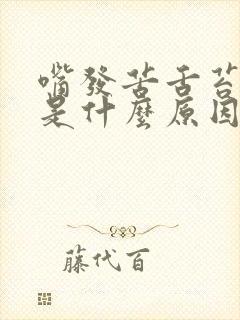 嘴發苦舌苔
是什麼原因
藤代百